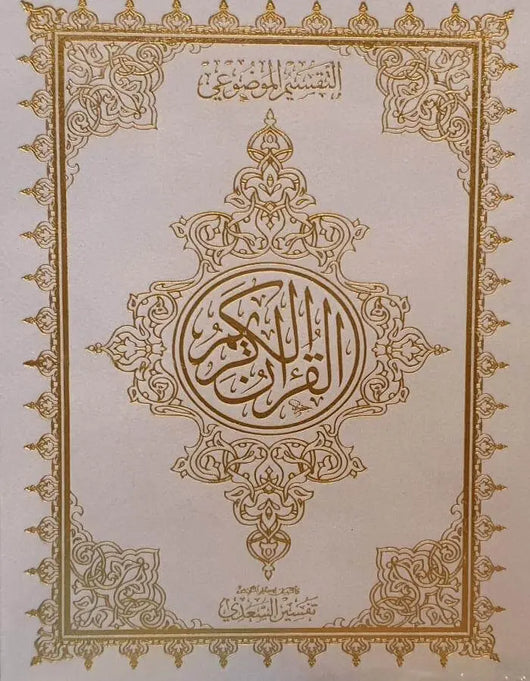 التقسيم الموضوعي
القرآن الكريم
تفسير السعدي